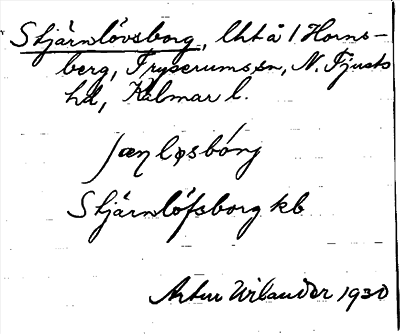 Stjärnlövsborg, lht å 1 Horns-
berg, Tryserums sn, N. Tjusts
hd, Kalmar l.
Stjärnlöfsborg kb
Artur Wilander 1930